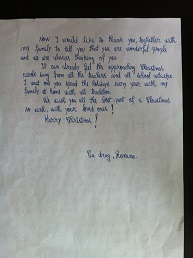 Now I would like to thank you, together with
my family to tell you that you are wonderful people
and we are always thinking of you.
I can already feel the approaching Christmas
carols sung from all the teachers and all school outside.
I wait on you spend the holidays every year with my
family at home with all tradition.
We wish you all the best part of a Christmas
so with, with your loved ones!
Merry Christmas!
Cu drag,